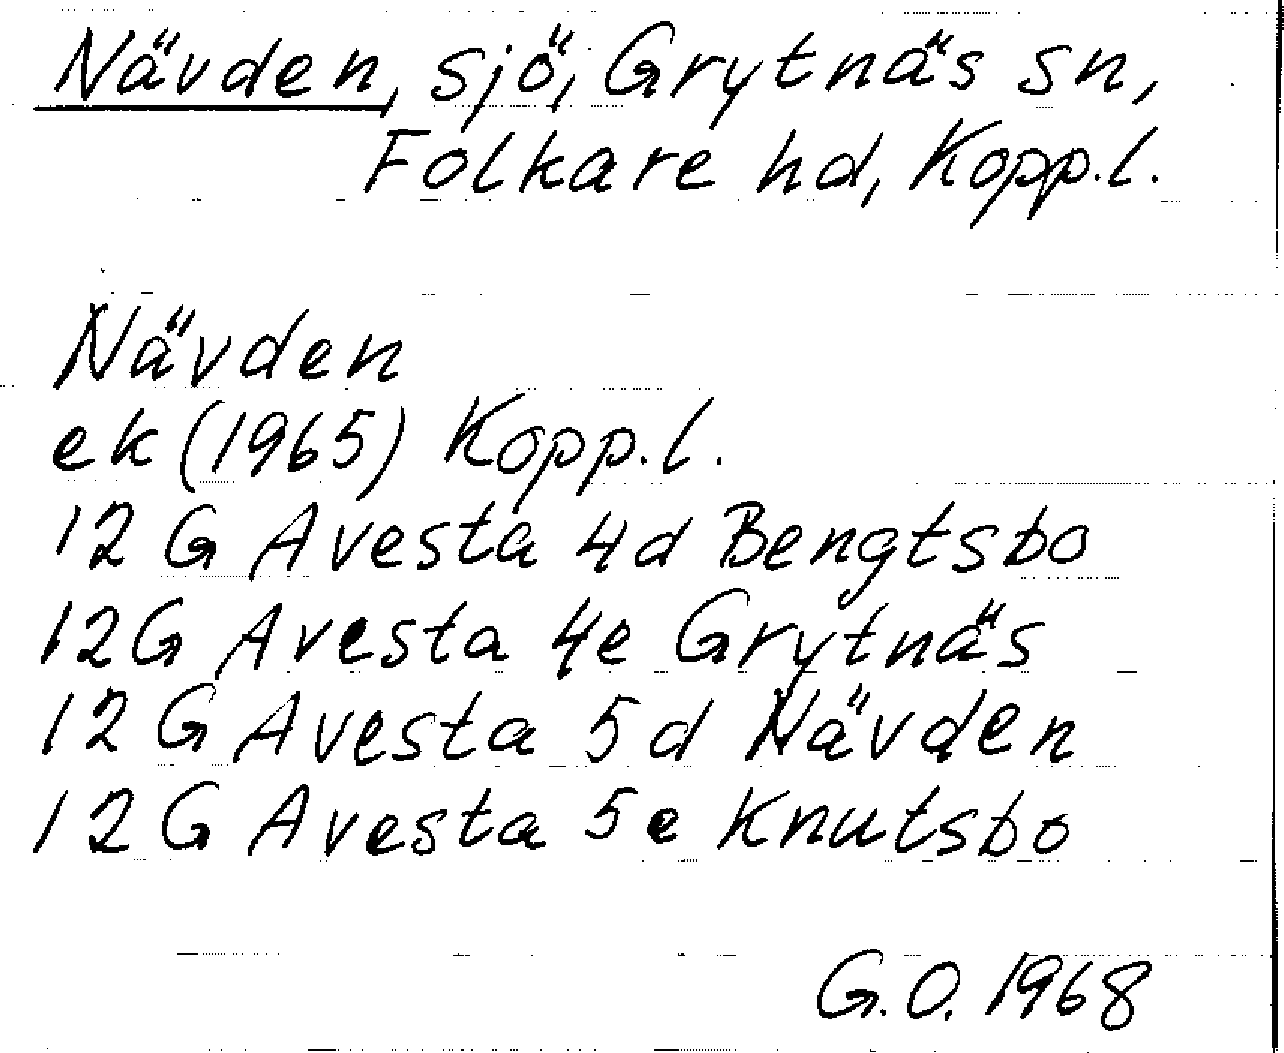 Nävden, sjö, Grytnäs sn,
Folkare hd, Kopp.l.
Nävden
ek (1965) Kopp.l.
12 G Avesta 4d Bengtsbo
12G Avesta 4e Grytnäs
12 G Avesta 5d Nävden
12 G Avesta 5e Knutsbo
G.O. 1968